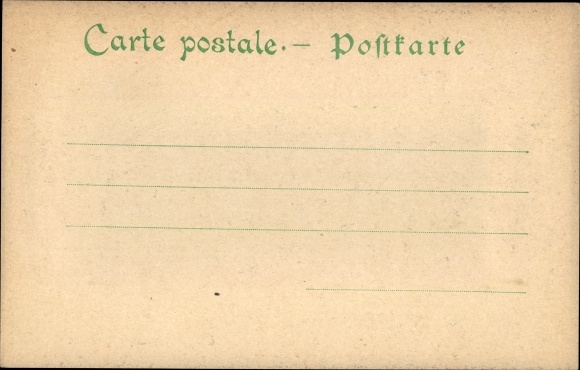 Carte postale. — Poſtkarte